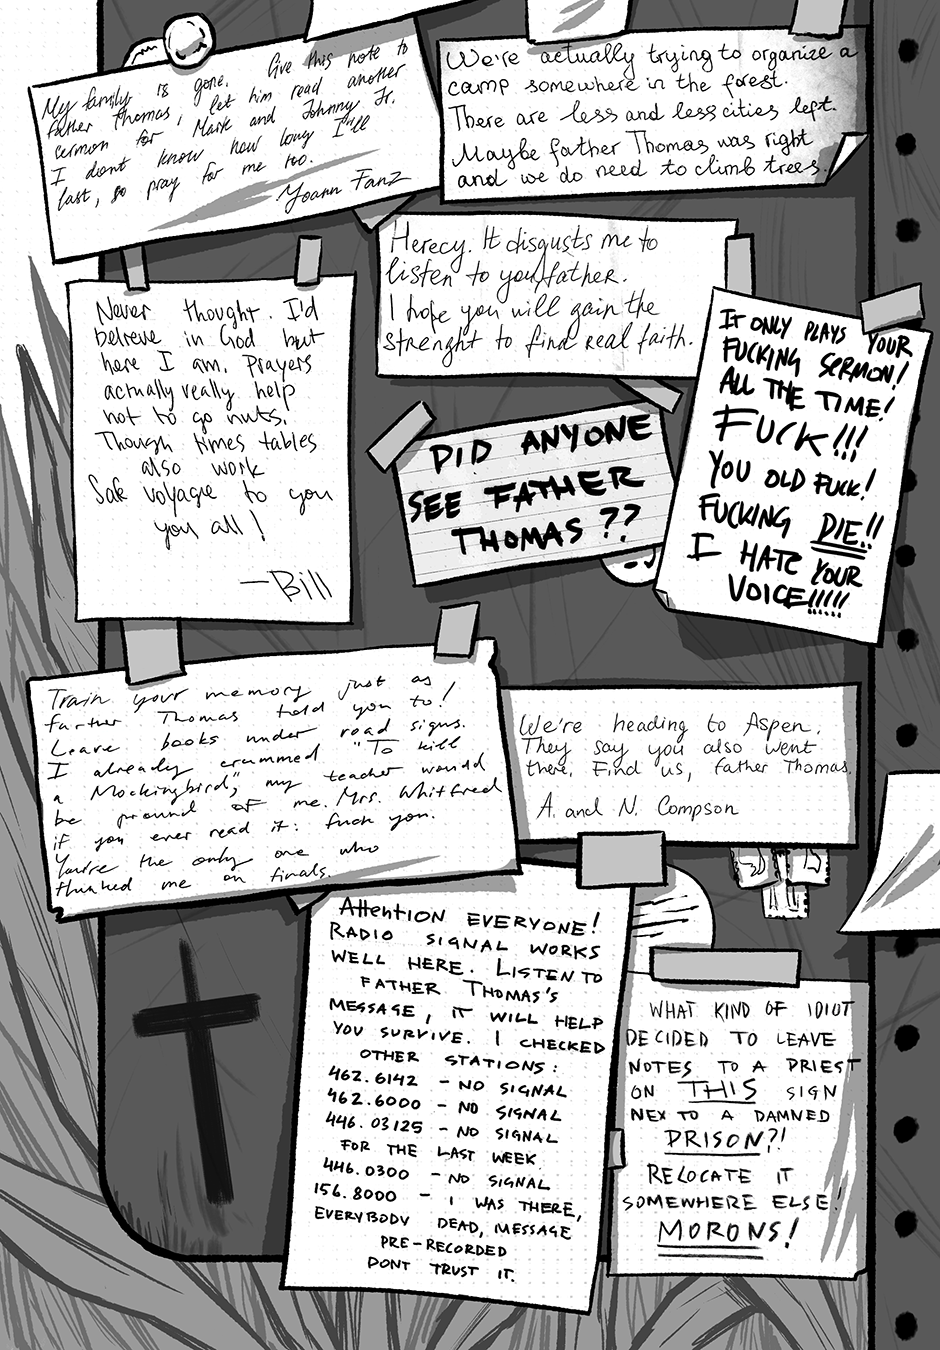 My family is gone. Give this note to
father Thomas, let him read another
sermon for Mark and Johnny Jr.
I don't know how long I'll
last, so pray for me too.
Yoann Fanz
We're actually trying to organize a
camp somewhere in the forest.
There are less and less cities left.
Maybe father Thomas was right
and we do need to climb trees.
Herecy. It disgusts me to
listen to you, father.
I hope you will gain the
strenght to find real faith.
Never thought I'd
believe in God but
here I am. Prayers
actually really help
not to go nuts.
Though times tables
also work
Safe voyage to you
you all!
—Bill
DID ANYONE
SEE FATHER
THOMAS??
IT ONLY PLAYS YOUR
FUCKING SERMON!
ALL THE TIME!
FUCK!!!
YOU OLD FUCK!
FUCKING DIE!!
I HATE YOUR
VOICE!!!!!
Train your memory just as
farther Thomas told you to!
Leave books under road signs.
I already crammed "To kill
a Mockingbird", my teacher would
be pround of me. Mrs. Whitfred
if you ever read it: fuck you.
You're the only one who
flunked me on finals.
We're heading to Aspen.
They say you also went
there. Find us, father Thomas.
A. and N. Compson
Attention EVERYONE!
RADIO SIGNAL WORKS
WELL HERE. LISTEN TO
FATHER THOMAS'S
MESSAGE, IT WILL HELP
YOU SURVIVE. I CHECKED
OTHER STATIONS:
462.6142 - NO SIGNAL
462.6000 - NO SIGNAL
446.03125 - NO SIGNAL
FOR THE LAST WEEK
446.0300 - NO SIGNAL
156.8000 - I WAS THERE,
EVERYBODY DEAD, MESSAGE
PRE-RECORDED
DONT TRUST IT.
WHAT KIND OF IDIOT
DECIDED TO LEAVE
NOTES TO A PRIEST
ON THIS SIGN
NEX TO A DAMNED
PRISON?!
RELOCATE IT
SOMEWHERE ELSE!
MORONS!